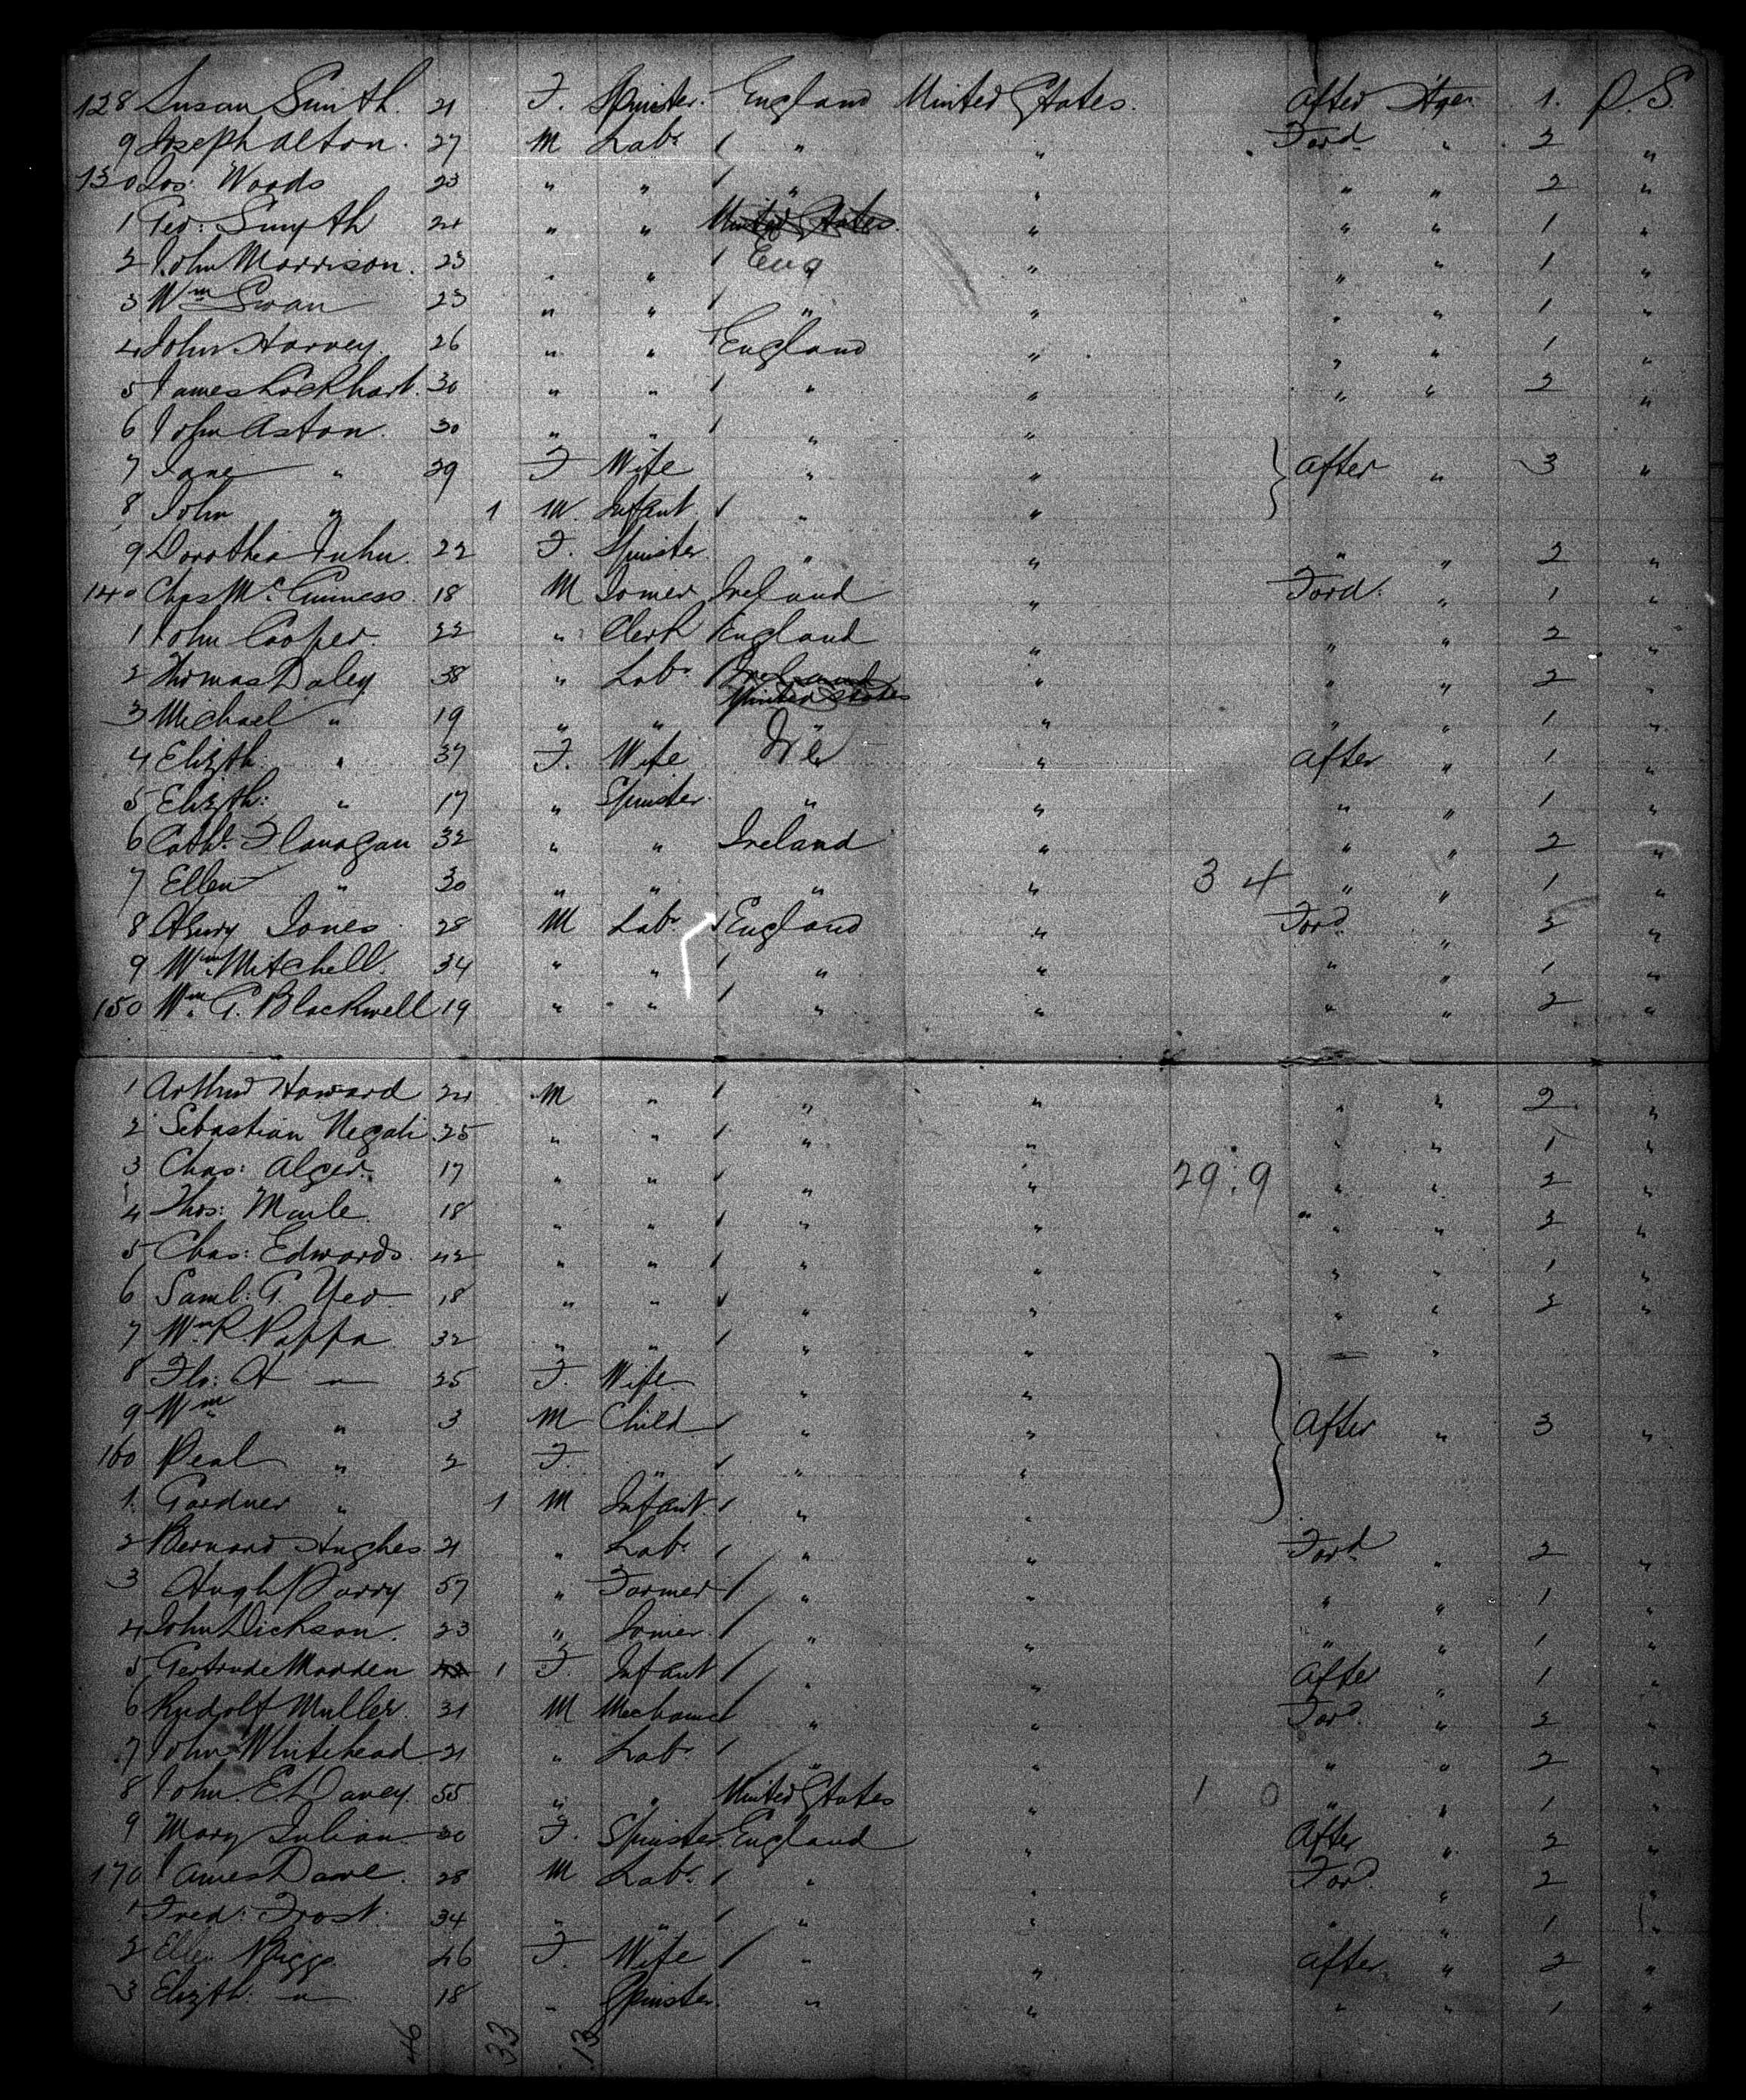 128 Susan Smith. 21 F. Spinster. England United States. After Stge. 1. P. S.
9 Joseph Alton. 27 M Labr " " Ford " 2 "
130 Jos: Woods 23 " " " " " " 2 "
1 Geo: Smyth 24 " " United States. " " " 1 "
2 John Morrison. 23 " " Eng " " " 1 "
3 Wm Swan 23 " " " " " " 1 "
4 John Harvey. 26 " " England " " " 1 "
5 James Lockhart. 30 " " " " " " 2 "
6 John Aston. 30 " " " "
7 Jane " 29 F Wife " " After " 3 "
8 John " 1 M. Infant " "
9 Dorothea 22 F. Spinster " " " " 2 "
140 Chas Mc Guiness 18 M Joiner Ireland " Ford. " 1 "
1 John Cooper. 22 " Clerk England " " " 2 "
2 Thomas Daley 38 " Labr Ireland " " " 2 "
United States
3 Michael " 19 " " " " " " 1 "
4 Elizth " 37 F. Wife Ire " After " 1 "
5 Elizth: " 17 " Spinster. " " " " 1 "
6 Cathe Flanagan 32 " " Ireland " " " 2 "
7 Ellen " 30 " " " " 3 4 " " 1 "
8 Henry Jones 28 M Labr England " Ford " 2 "
9 Wm Mitchell. 34 " " " " " " 1 "
150 Wm G. Blackwell 19 " " " " " " 2 "
1 Arthur Howard 24 M " " " " " 2 "
2 Sebastian 25 " " " " " " 1 "
3 Chas: Alger. 17 " " " " 29:9 " " 2 "
4 Thos: Marle 18 " " " " " " 2 "
5 Chas: Edwards. 42 " " " " " " 1 "
6 Saml: G. Yeo 18 " " " " " " 2 "
7 Wm R. Pappa 32 " " " " "
8 Flo: H " 25 F. Wife " "
9 Wm " 3 M Child " " After " 3 "
160 Peal " 2 F. " " "
1. Gardner " 1 M Infant. " "
2 Bernard Hughes. 21 " Labr " " Ford " 2 "
3 Hugh Parry 57 " Farmer " " " " 1 "
4 John Dickson. 23 " Joiner. " " " " 1 "
5 Gertrude Madden 1 F. Infant " " After " 1 "
6 Rudolf Muller. 31 M Mechanic " " Ford. " 2 "
7 John Whitehead 21 " Labr " " " " 2 "
8 John. E. Davey. 55 " " United States " 1 0 " " 1 "
9 Mary Julian 30 F. Spinster England " After " 2 "
170 James Dawe. 28 M Labr. " " Ford. " 2 "
1 Fred: Frost. 34 " " " " " " 1 "
2 Ellen Briggs 46 F. Wife " " After " 2 "
3 Elizth. " 18 " Spinster. " " " " 1 "
46 33 13